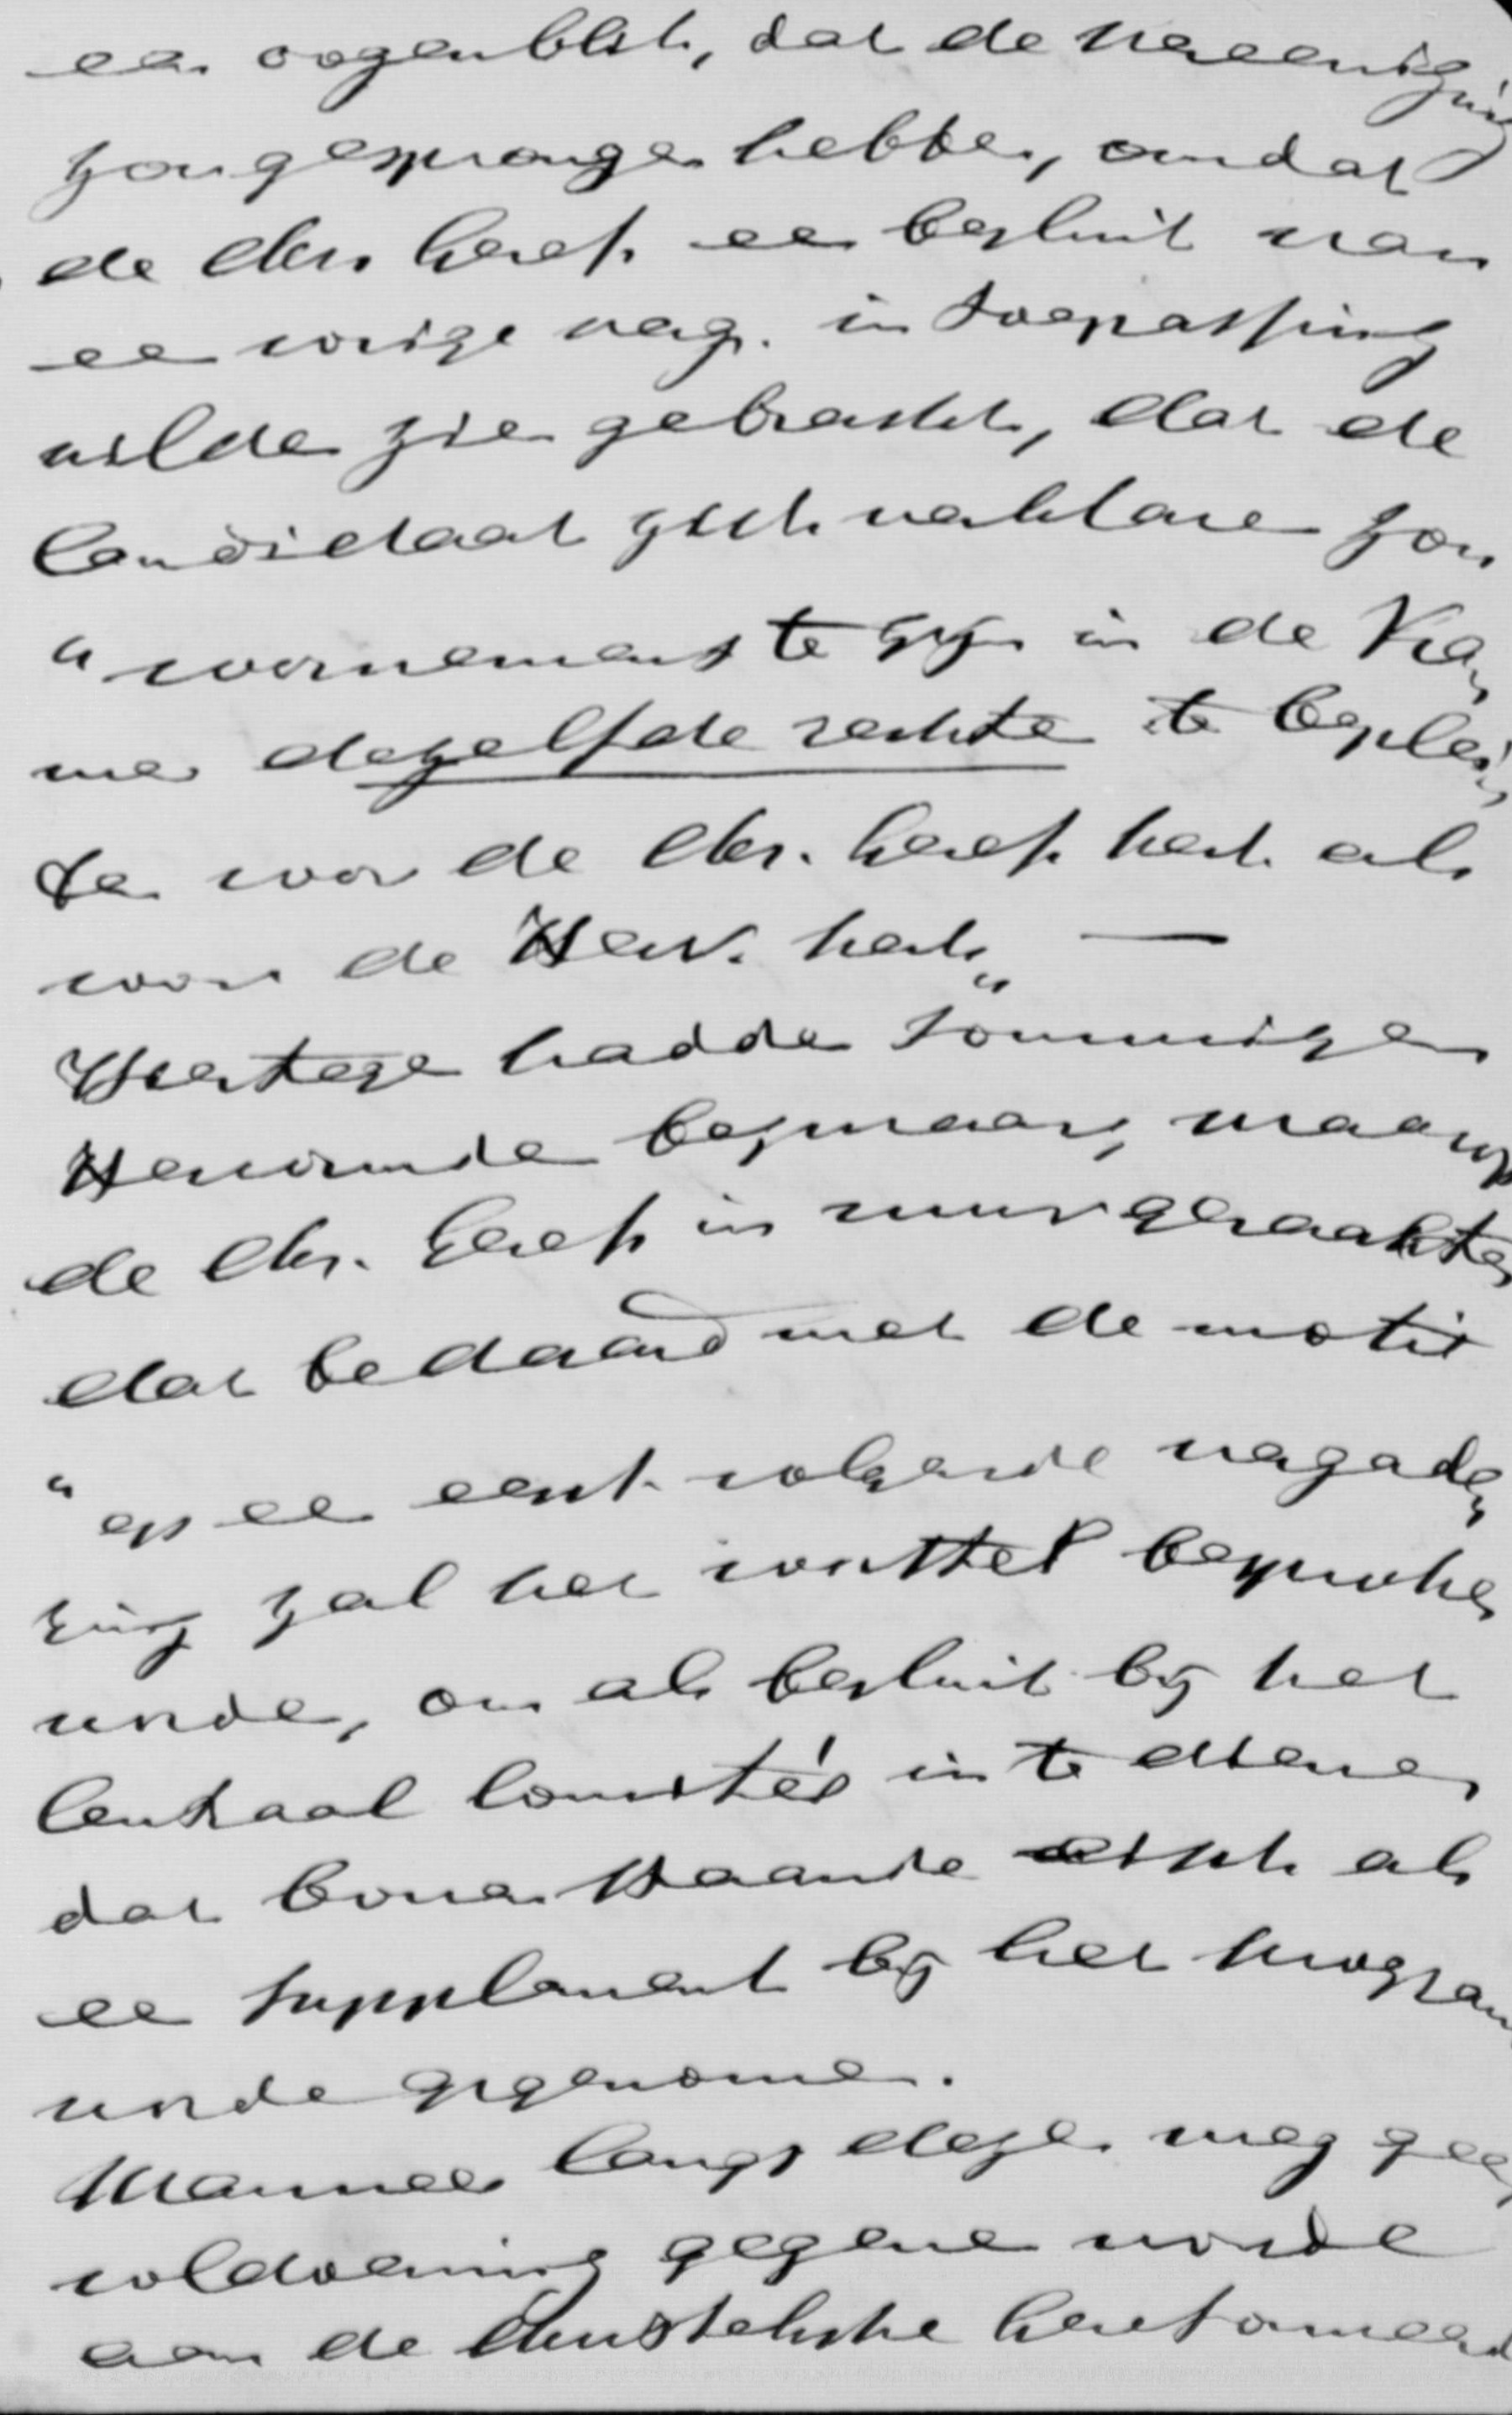 een oogenblik, dat de vereeniging
zou gesprongen hebben, omdat
de Chr. Geref. een besluit van
een vorige verg. in toepassing
wilden zien gebracht, dat de
Candidaat zich verklaren zou
"voornemens te zijn in de Ka
mer dezelfde rechten te beplei
ten voor de Chr. Geref. kerk als
voor de Herv. kerk" —
Hiertegen hadden sommigen
Hervormden bezwaar, waarop
de Chr. Geref. in vuur geraakten
dat bedaard met de motie
"op een eerst volgende vergade
ring zal het voorstel besproken
worden, om als besluit bij het
Centraal Comité in te dienen
dat bovenstaande eisch als
een supplement bij het program
worde opgenomen.
Wanneer langs dezen weg geen
voldoening gegeven worde
aan de Christelijke Gereformeerd